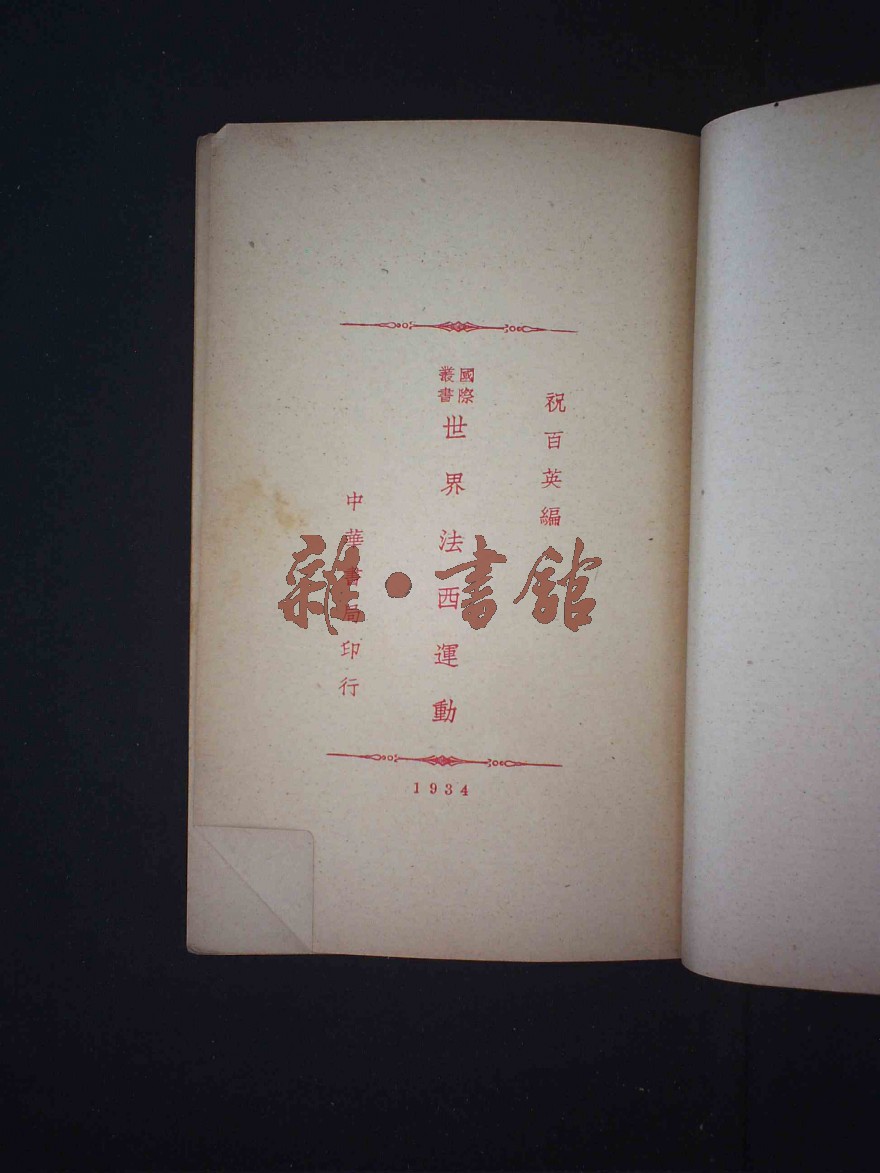 祝百英編
國際
叢書
世界法西運動
中華書局印行
1934
雜·書館